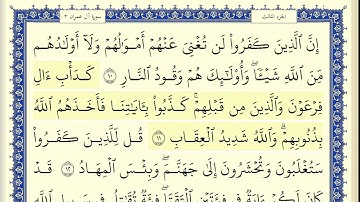 الجزء الثالث
سورة آل عمران ٣
إِنَّ ٱلَّذِينَ كَفَرُوا۟ لَن تُغْنِىَ عَنْهُمْ أَمْوَٰلُهُمْ وَلَآ أَوْلَٰدُهُم
مِّنَ ٱللَّهِ شَيْـًٔا ۖ وَأُو۟لَٰٓئِكَ هُمْ وَقُودُ ٱلنَّارِ ١٠ كَدَأْبِ ءَالِ
فِرْعَوْنَ وَٱلَّذِينَ مِن قَبْلِهِمْ ۚ كَذَّبُوا۟ بِـَٔايَٰتِنَا فَأَخَذَهُمُ ٱللَّهُ
بِذُنُوبِهِمْ ۗ وَٱللَّهُ شَدِيدُ ٱلْعِقَابِ ١١ قُل لِّلَّذِينَ كَفَرُوا۟
سَتُغْلَبُونَ وَتُحْشَرُونَ إِلَىٰ جَهَنَّمَ ۚ وَبِئْسَ ٱلْمِهَادُ ١٢ قَدْ
كَانَ لَكُمْ ءَايَةٌ فِى فِئَتَيْنِ ٱلْتَقَتَا ۖ فِئَةٌ تُقَٰتِلُ فِى سَبِيلِ ٱللَّهِ